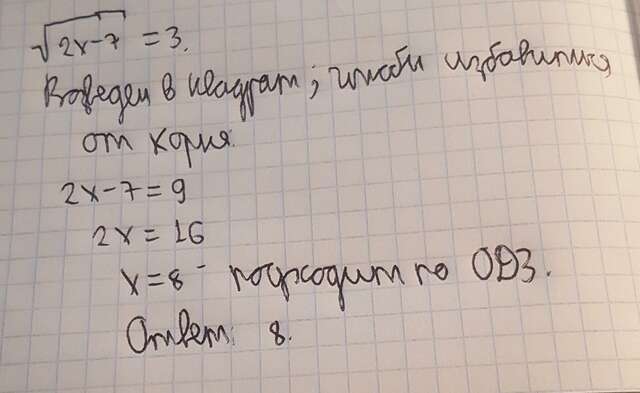 √2x-7 = 3.
Возведем в квадрат, чтобы избавиться
от корня.
2x-7=9
2x=16
x=8 - подходит по ОДЗ.
Ответ: 8.